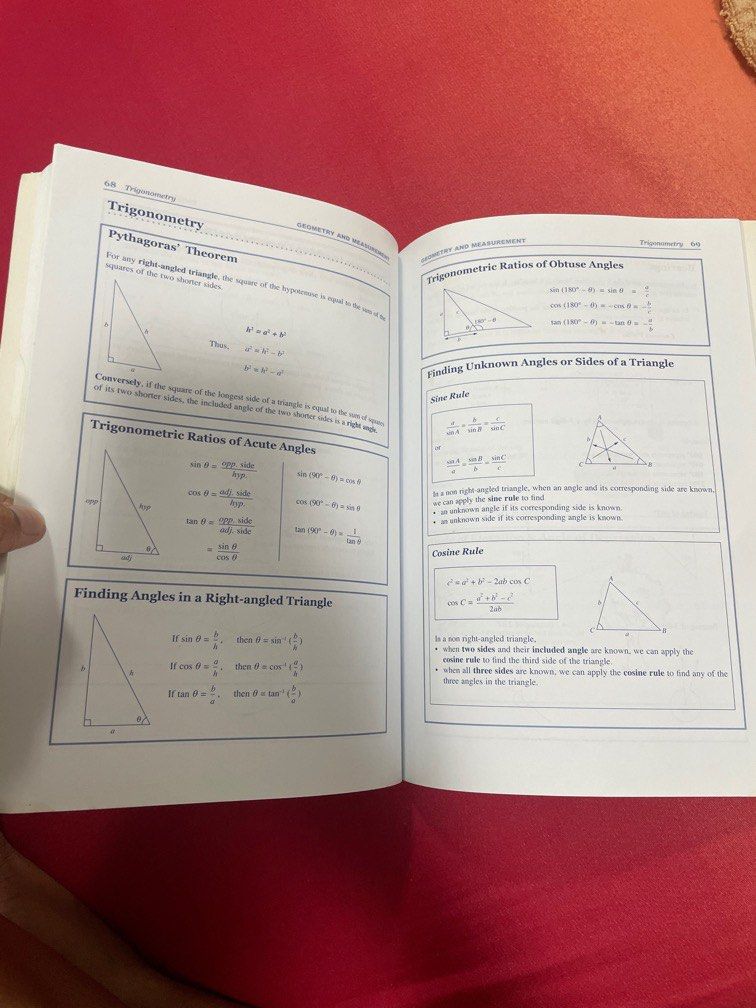 68 Trigonometry
GEOMETRY AND MEASUREMENT
Trigonometry
Pythagoras' Theorem
For any right-angled triangle, the square of the hypotenuse is equal to the sum of the
squares of the two shorter sides.
b
h
a
h² = a² + b²
Thus, a² = h² – b²
b² = h² – a²
Conversely, if the square of the longest side of a triangle is equal to the sum of squares
of its two shorter sides, the included angle of the two shorter sides is a right angle.
Trigonometric Ratios of Acute Angles
opp
hyp
adj
θ
sin θ = opp. side / hyp.
cos θ = adj. side / hyp.
tan θ = opp. side / adj. side
= sin θ / cos θ
sin (90° – θ) = cos θ
cos (90° – θ) = sin θ
tan (90° – θ) = 1 / tan θ
Finding Angles in a Right-angled Triangle
b
h
θ
a
If sin θ = b/h, then θ = sin⁻¹ (b/h)
If cos θ = a/h, then θ = cos⁻¹ (a/h)
If tan θ = b/a, then θ = tan⁻¹ (b/a)
GEOMETRY AND MEASUREMENT
Trigonometry 69
Trigonometric Ratios of Obtuse Angles
a
c
θ
180° – θ
b
sin (180° – θ) = sin θ = a/c
cos (180° – θ) = –cos θ = –b/c
tan (180° – θ) = –tan θ = –a/b
Finding Unknown Angles or Sides of a Triangle
Sine Rule
a/sin A = b/sin B = c/sin C
or
sin A/a = sin B/b = sin C/c
A
b
c
C
a
B
In a non right-angled triangle, when an angle and its corresponding side are known,
we can apply the sine rule to find
• an unknown angle if its corresponding side is known.
• an unknown side if its corresponding angle is known.
Cosine Rule
c² = a² + b² – 2ab cos C
cos C = a² + b² – c² / 2ab
A
b
c
C
a
B
In a non right-angled triangle,
• when two sides and their included angle are known, we can apply the
cosine rule to find the third side of the triangle.
• when all three sides are known, we can apply the cosine rule to find any of the
three angles in the triangle.